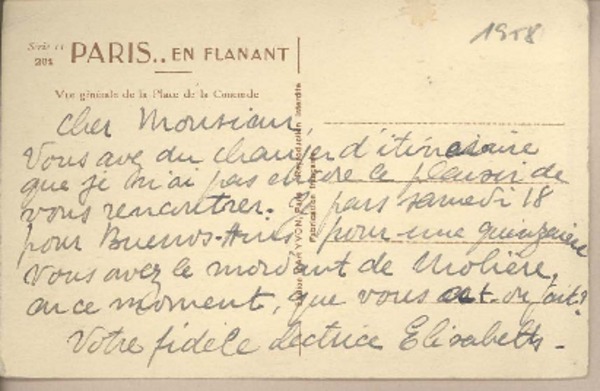 1958
Série 11
201
PARIS.. EN FLANANT
Vue générale de la Place de la Concorde
YVON, Paris Reproduction interdite
Fabrication française
Cher Monsieur,
Vous avez du changer d'itinéraire
que je n'ai pas encore le plaisir de
vous rencontrer. Je pars samedi 18
pour Buenos-Aires pour une quinzaine
Vous avez le mordant de Molière,
en ce moment, que vous on fait?
Votre fidèle lectrice Elisabeth -